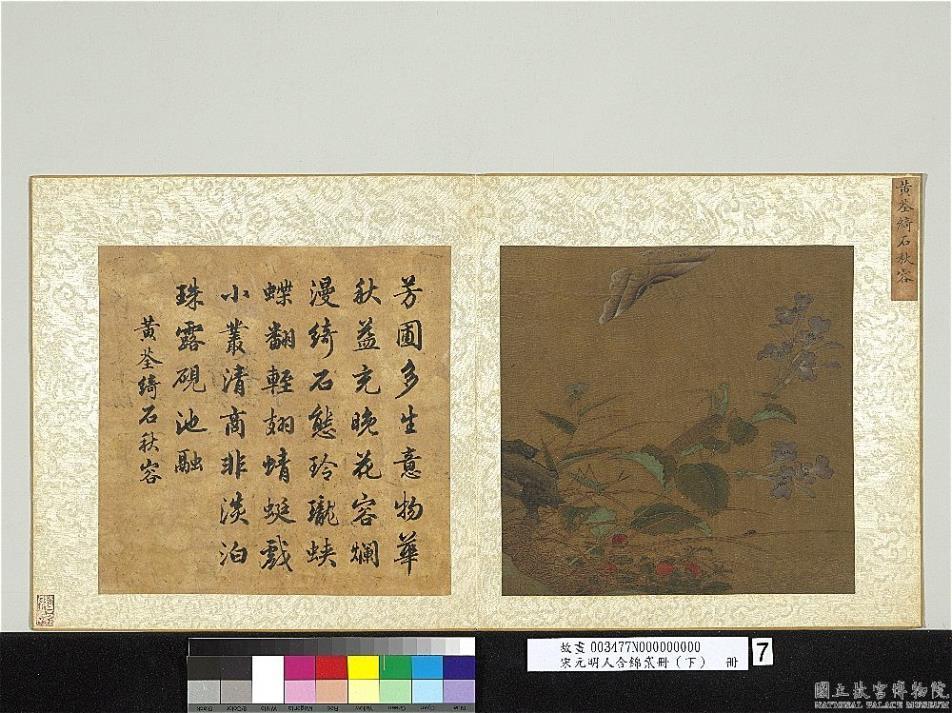 黃荃綺石秋容
芳圃多生意物華
秋益充晚花容爛
漫綺石態玲瓏蛺
蝶翻輕翅蜻蜓戲
小叢清商非淡泊
珠露硯池融
黃荃綺石秋容
故畫 003477N000000000
宋元明人合錦貳冊(下) 冊
7
Blue Cyan Green Yellow Red Magenta White 3/Color Black
國立故宮博物院
NATIONAL PALACE MUSEUM